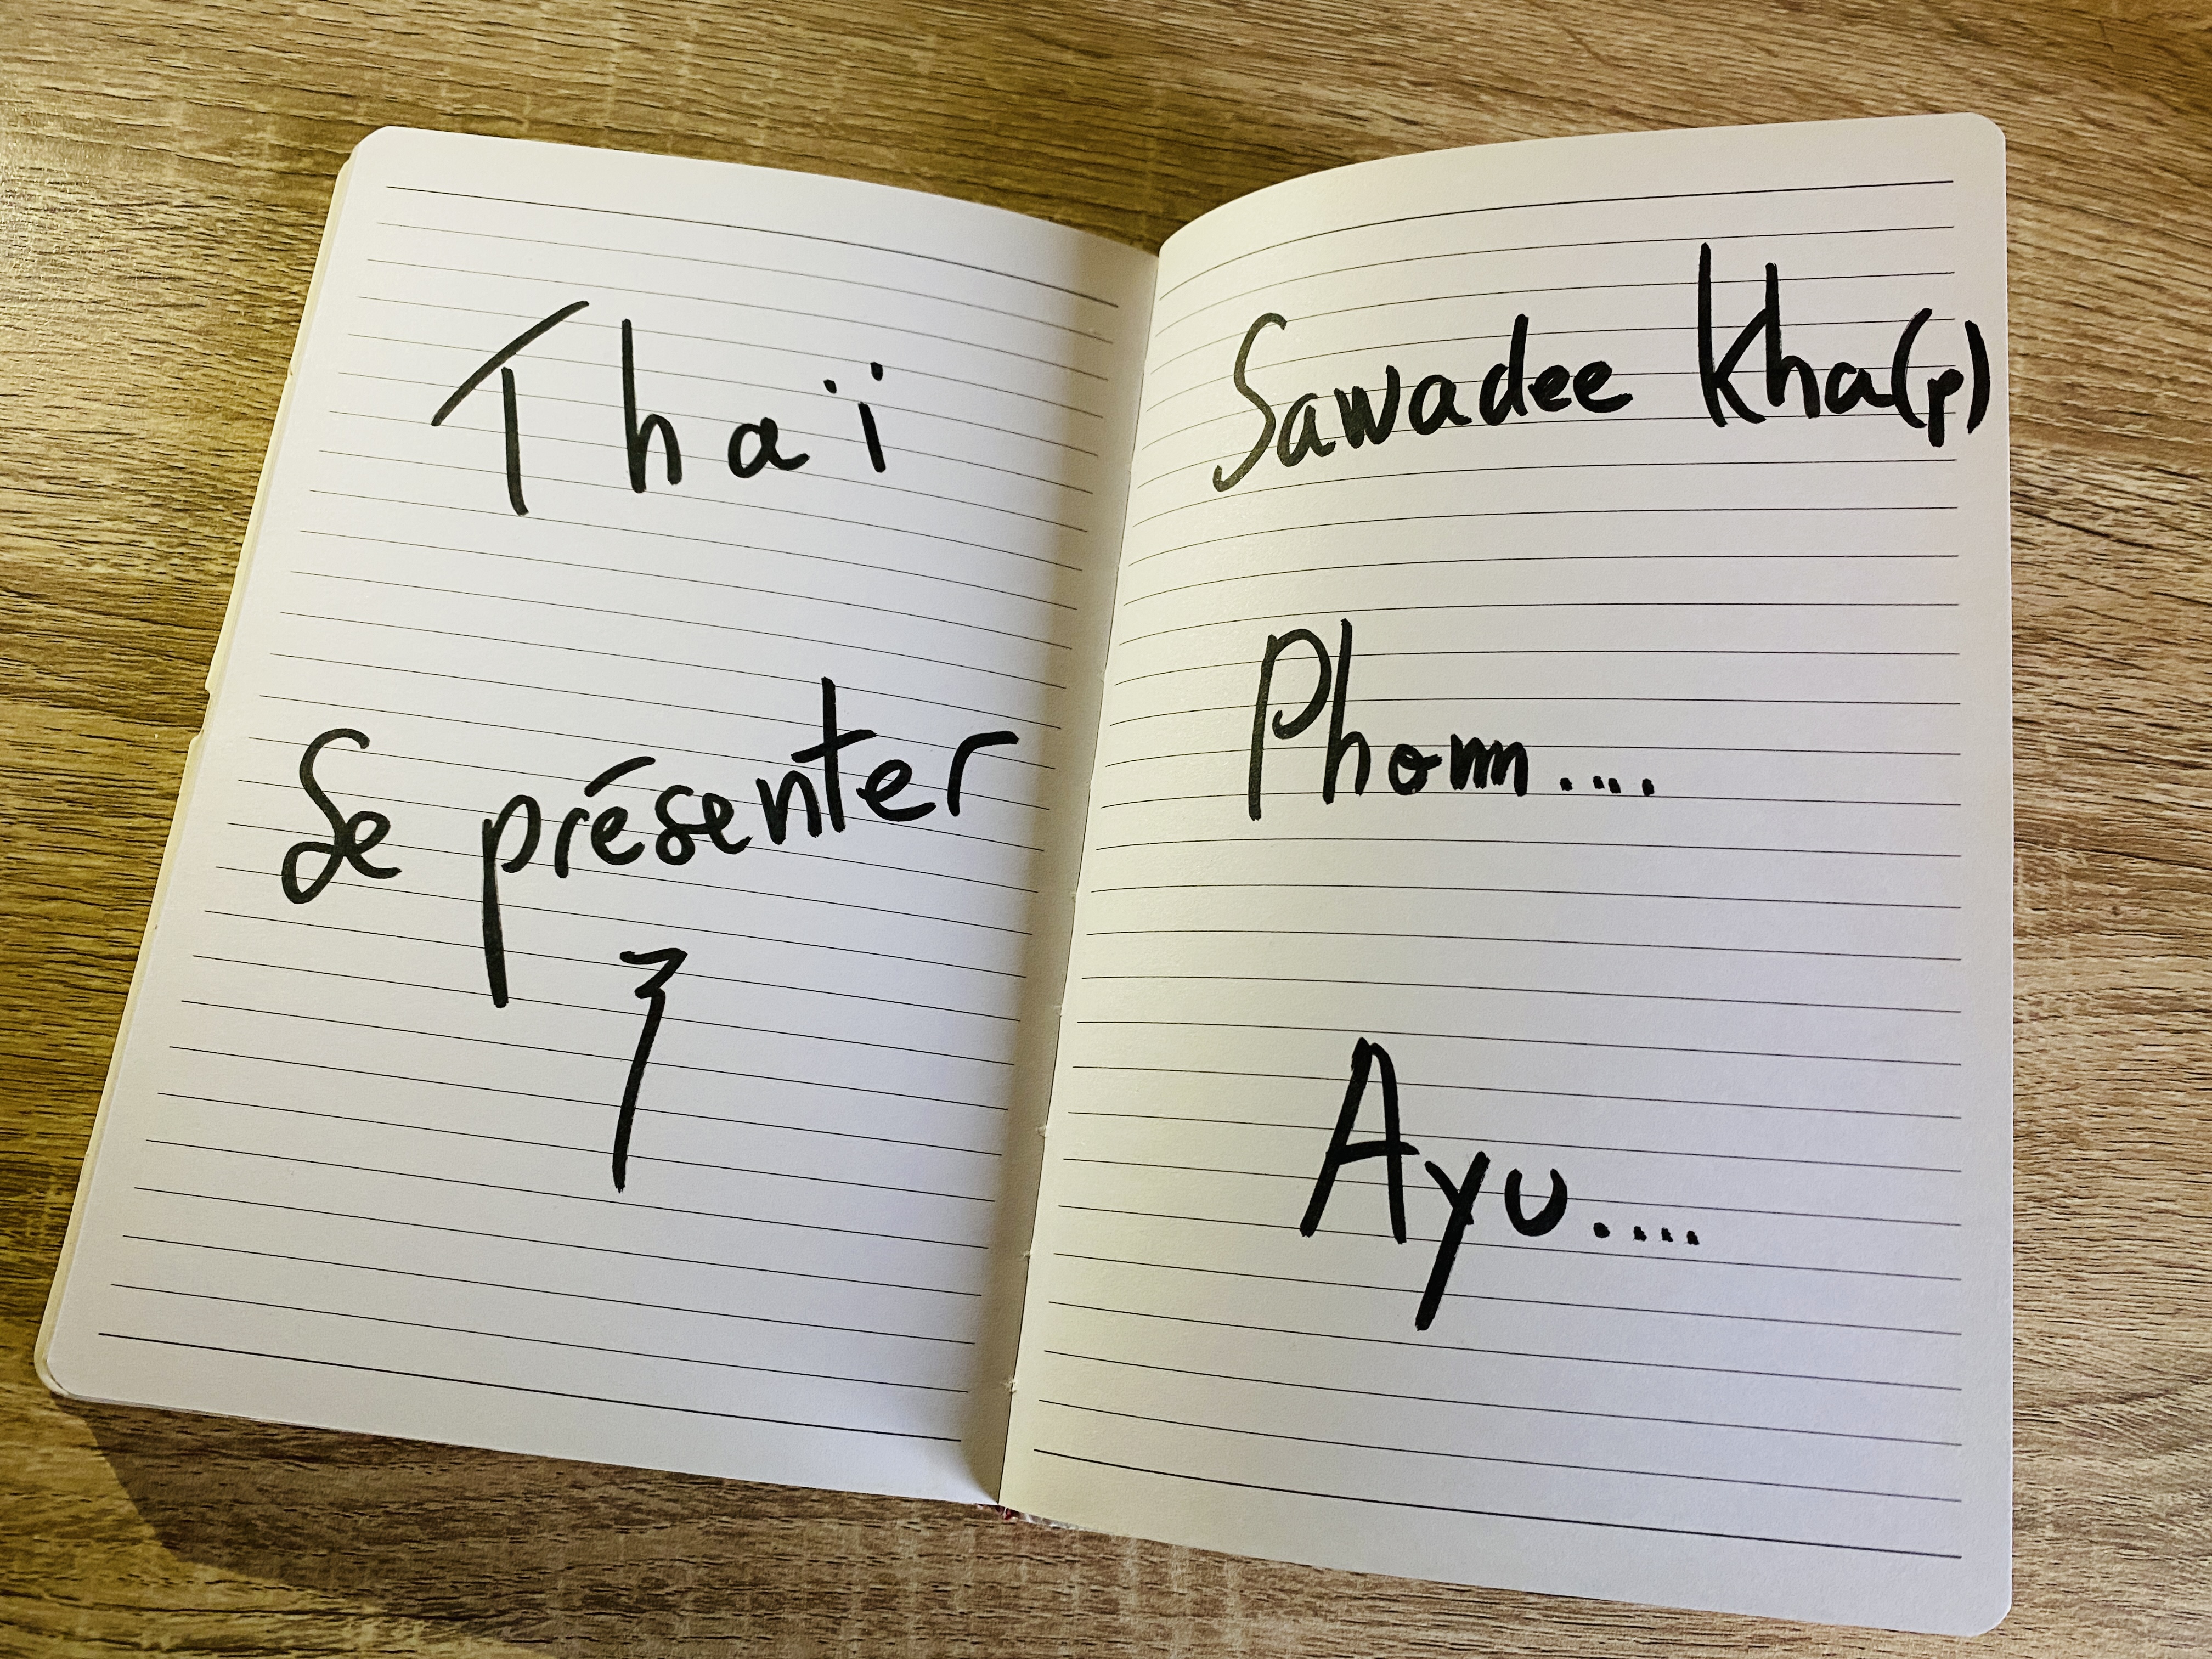 Thaï
Se présenter
Sawadee Kha(p)
Phom....
Ayu....